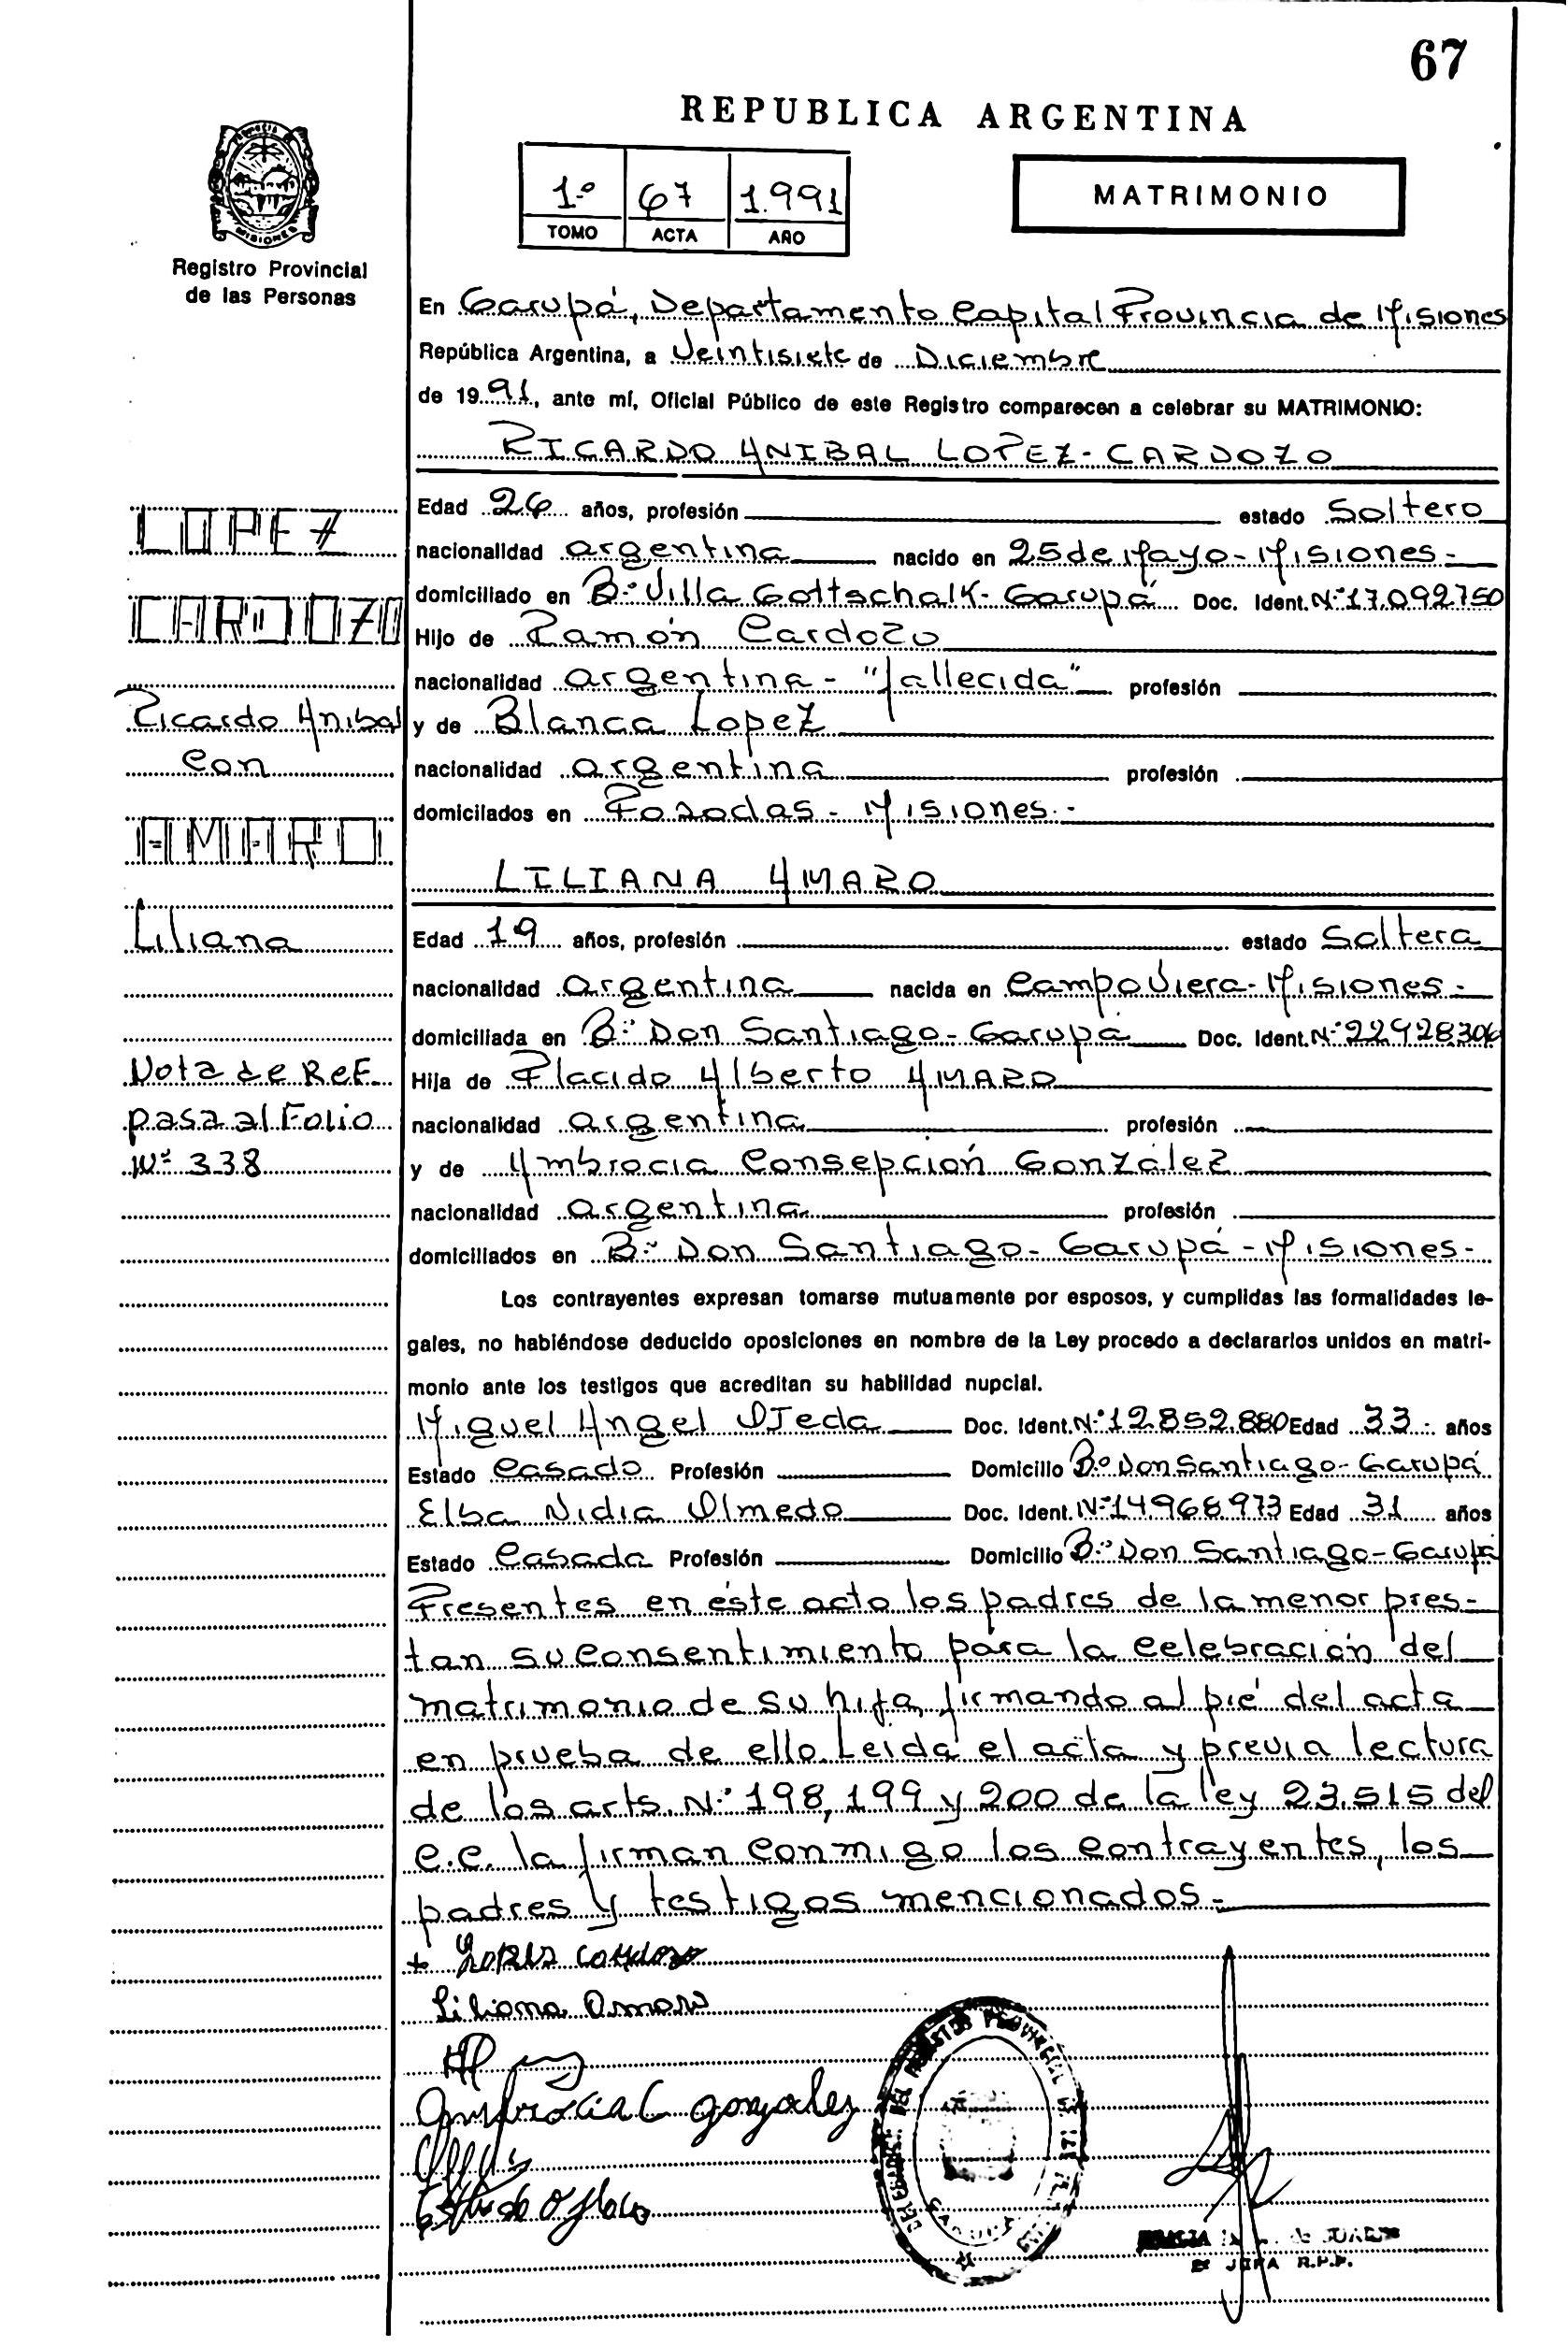 67
REPUBLICA ARGENTINA
1º 67 1.991
TOMO ACTA AÑO
MATRIMONIO
MISIONES
Registro Provincial
de las Personas
En Garupá, Departamento Capital Provincia de Misiones
República Argentina, a Veintisiete de Diciembre
de 1991, ante mí, Oficial Público de este Registro comparecen a celebrar su MATRIMONIO:
RICARDO ANIBAL LOPEZ-CARDOZO
Edad 26 años, profesión estado Soltero
nacionalidad argentina nacido en 25 de Mayo-Misiones-
domiciliado en B.º Villa Gottschalk-Garupá Doc. Ident. Nº 17.092.750
Hijo de Ramón Cardozo
nacionalidad argentina - "fallecida" profesión
y de Blanca Lopez
nacionalidad argentina profesión
domiciliados en Posadas - Misiones.-
LILIANA AMARO
Edad 19 años, profesión estado Soltera
nacionalidad argentina nacida en Campo Viera-Misiones-
domiciliada en B.º Don Santiago-Garupá Doc. Ident. Nº 22.928.306
Hija de Placido Alberto AMARO
nacionalidad argentina profesión
y de Ambrocia Consepción González
nacionalidad argentina profesión
domiciliados en B.º Don Santiago-Garupá-Misiones-
Los contrayentes expresan tomarse mutuamente por esposos, y cumplidas las formalidades le-
gales, no habiéndose deducido oposiciones en nombre de la Ley procedo a declararlos unidos en matri-
monio ante los testigos que acreditan su habilidad nupcial.
Miguel Angel OJeda Doc. Ident. Nº 12.852.880 Edad 33 años
Estado Casado Profesión Domicilio B.º Don Santiago-Garupá
Elba Nidia Olmedo Doc. Ident. Nº 14.968.973 Edad 31 años
Estado Casada Profesión Domicilio B.º Don Santiago-Garupá
Presentes en éste acto los padres de la menor pres-
tan su consentimiento para la celebración del
matrimonio de su hija, firmando al pié del acta
en prueba de ello. Leida el acta y previa lectura
de los arts. Nº 198, 199 y 200 de la ley 23.515 del
C.C. la firman conmigo los contrayentes, los
padres y testigos mencionados.-
LOPEZ
CARDOZO
Ricardo Anibal
Con
AMARO
Liliana
Nota de Ref.
pasa al Folio
Nº 338
+ Lopez cardozo
Liliana Amaro
Ambrocia C gonzalez
JEFA R.P.P.